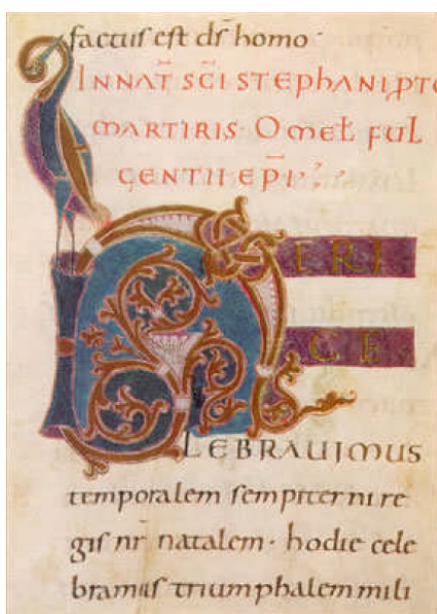 factus est dſ homo·
IN NAT̄ SC̄I STEPHANI PTO
MARTIRIS· OMEL FUL
GENTII EPĪ·
HERI
CE
LEBRAUIMUS
temporalem sempiterni re
gis nr̄ natalem· hodie cele
bramus triumphalem mili